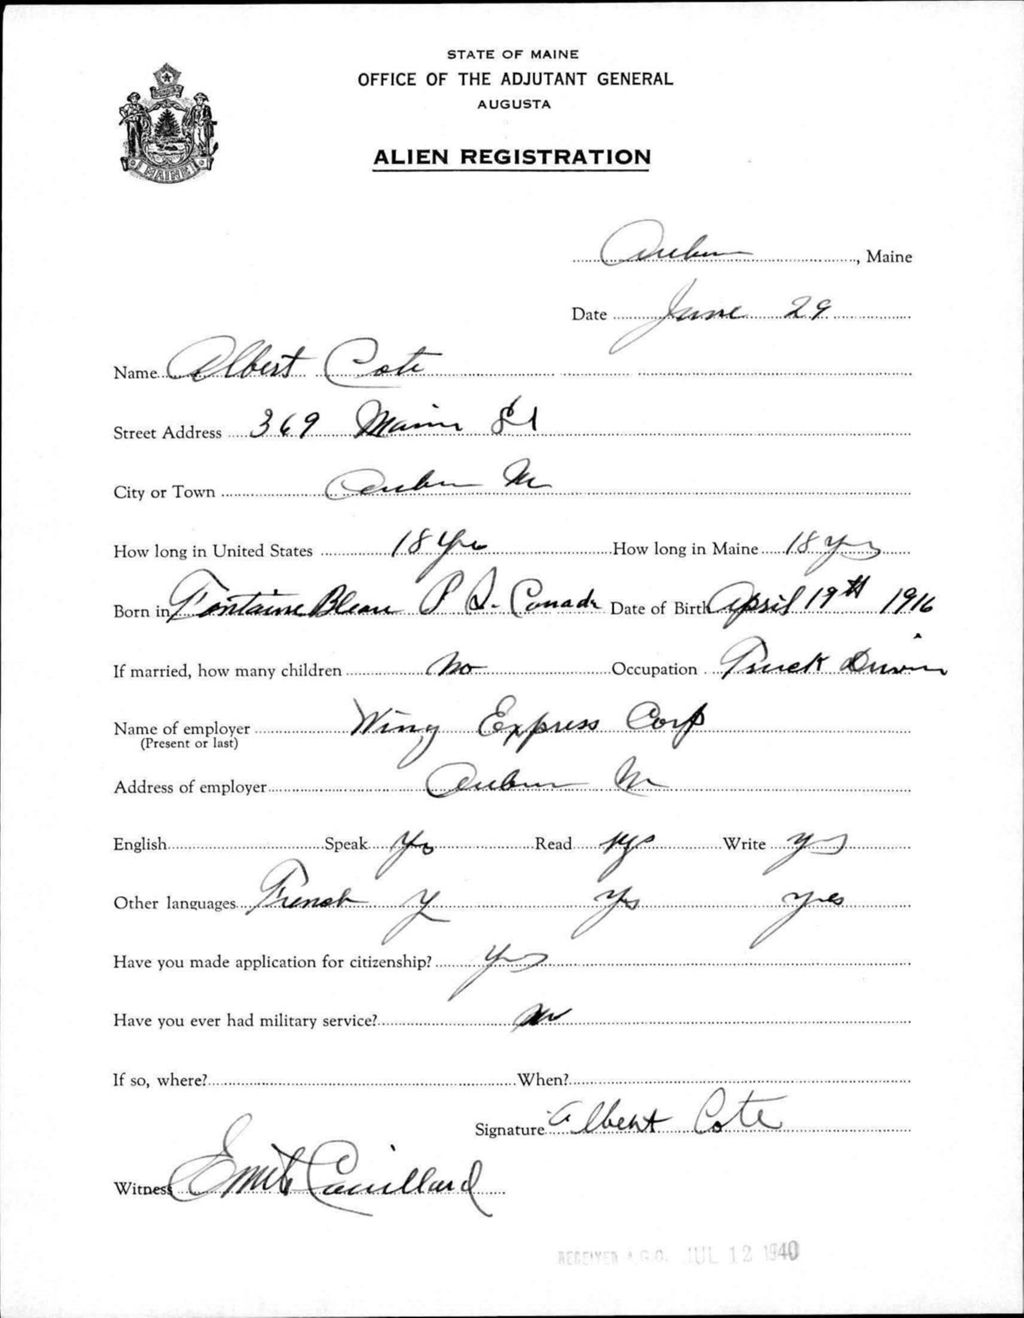 STATE OF MAINE
OFFICE OF THE ADJUTANT GENERAL
AUGUSTA
ALIEN REGISTRATION
MAINE
Auburn, Maine
Date June 29
Name Albert Cote
Street Address 369 Main St
City or Town Auburn Me
How long in United States 18 Yrs How long in Maine 18 yrs
Born in Fontaine Bleau P Q. Canada Date of Birth April 19th 1916
If married, how many children No Occupation Truck Driver
Name of employer Wing Express Corp
(Present or last)
Address of employer Auburn Me
English Speak Yes Read yes Write yes
Other languages French y yes yes
Have you made application for citizenship? yes
Have you ever had military service? no
If so, where? When?
Signature Albert Cote
Witness Emile Couillard
RECEIVED A.G.O. JUL 12 1940